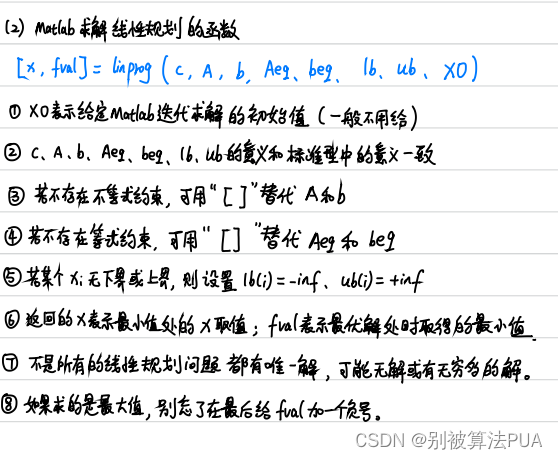 (2) Matlab求解线性规划的函数
[x, fval] = linprog (c, A, b, Aeq, beq、 lb、ub、X0)
① X0表示给定Matlab迭代求解的初始值（一般不用给）
② c、A、b、Aeq、beq、lb、ub的意义和标准型中的意义一致
③ 若不存在不等式约束，可用“[ ]”替代 A和b
④ 若不存在等式约束，可用“[ ]”替代 Aeq 和 beq
⑤ 若某个 xi 无下界或上界，则设置 lb(i)=-inf、ub(i)=+inf
⑥ 返回的X表示最小值处的X取值；fval表示最优解处时取得的最小值.
⑦ 不是所有的线性规划问题都有唯一解，可能无解或有无穷多的解。
⑧ 如果求的是最大值，别忘了在最后给fval加一个负号。
CSDN @别被算法PUA